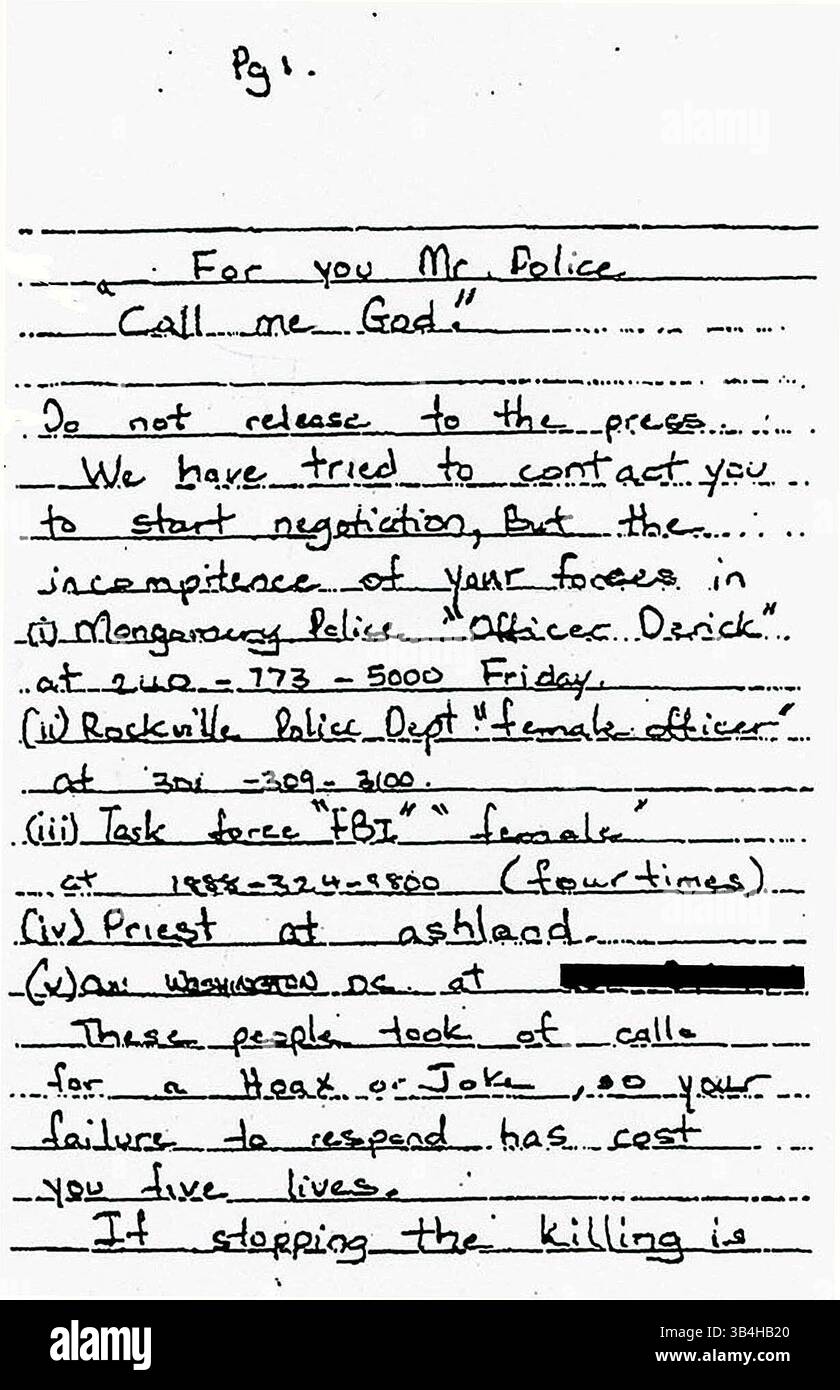 Pg 1.
For you Mr. Police
"Call me God."
Do not release to the press.
We have tried to contact you
to start negotiation, But the
incompitence of your forces in
(i) Mongomery Police "Officer Derick"
at 240-773-5000 Friday.
(ii) Rockville Police Dept. "female officer"
at 301-309-3100.
(iii) Task force "FBI" "female"
at 1888-324-9800 (four times)
(iv) Priest at ashland.
(v) WASHINGTON DC at
These people took of calls
for a Hoax or Joke, so your
failure to respond has cost
you five lives.
If stopping the killing is
alamy
Image ID: 3B4HB20
www.alamy.com